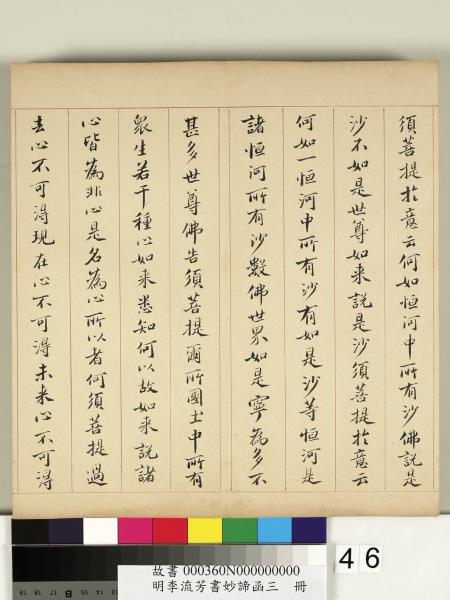 須菩提於意云何如恒河中所有沙佛說是
沙不如是世尊如來說是沙須菩提於意云
何如一恒河中所有沙有如是沙等恒河是
諸恒河所有沙數佛世界如是寧為多不
甚多世尊佛告須菩提爾所國土中所有
眾生若干種心如来悉知何以故如来說諸
心皆為非心是名為心所以者何須菩提過
去心不可得現在心不可得未来心不可得
46
故書 000360N000000000
明李流芳書妙諦函三 冊